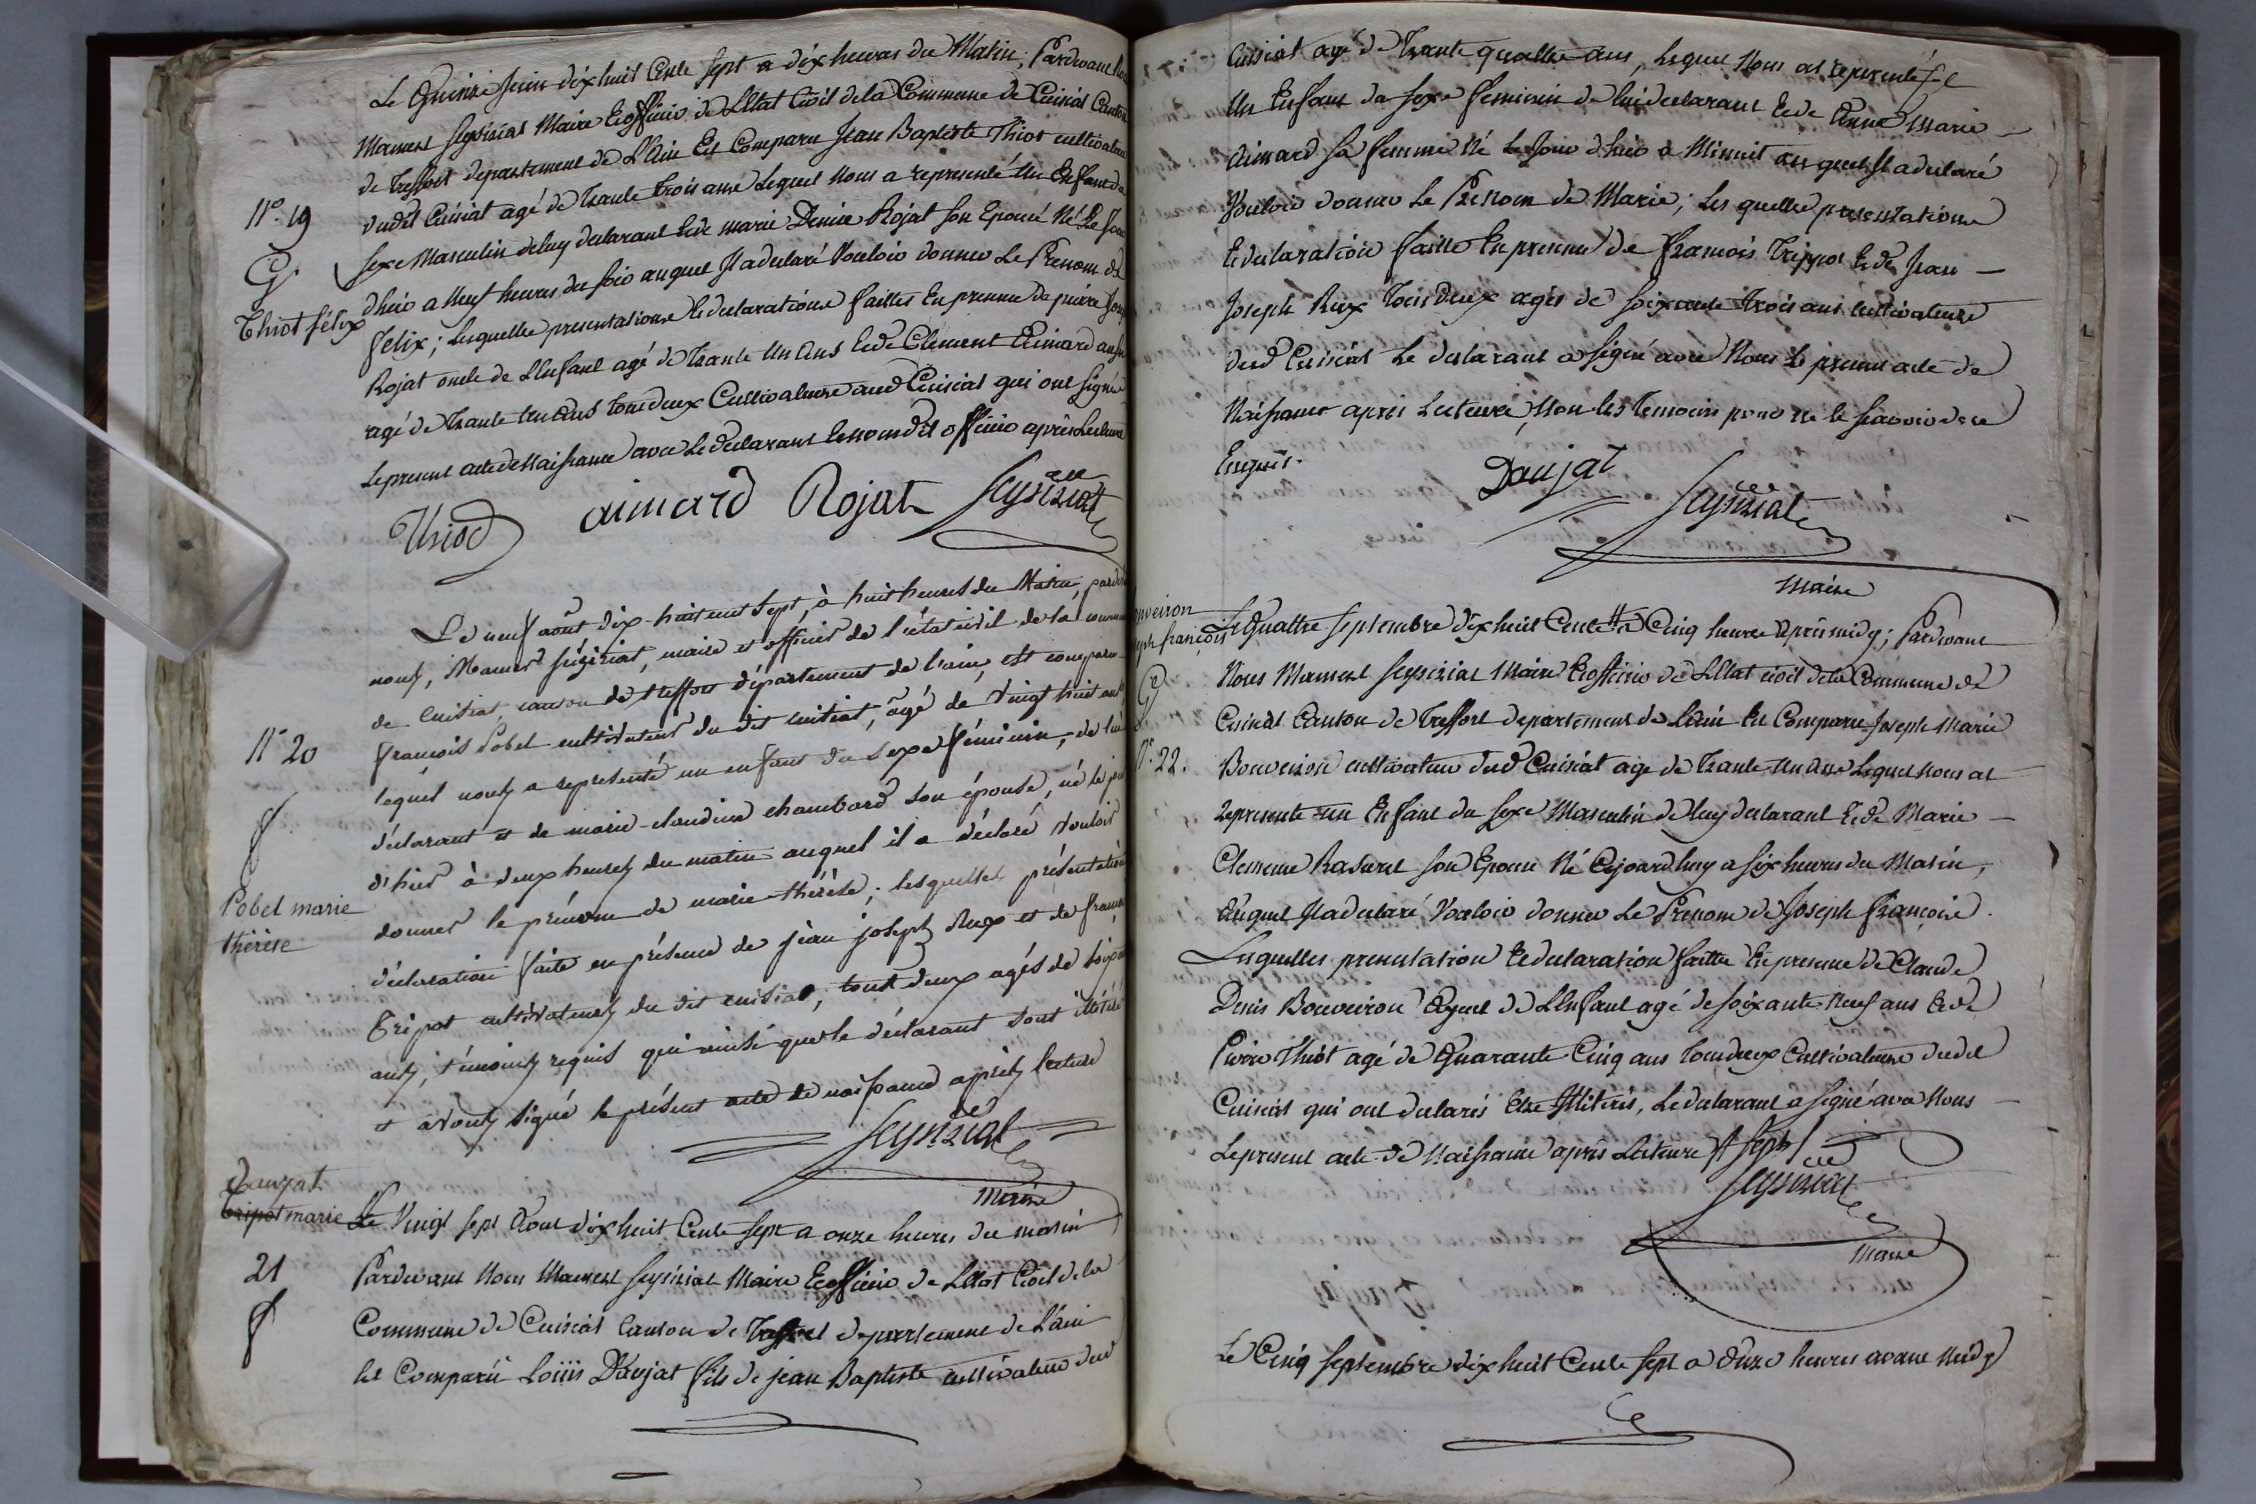 Le Quinze juin dix huit Cents Sept a dix heures du Matin, Pardevant
Mamert Seyziriat Maire Et officier de L'Etat Civil de la Commune de Cuisiat Canton
de Treffort departement de L'Ain Est Comparu Jean Baptiste Thiot cultivateur
dudit Cuisiat agé de Trante trois ans Lequel Nous a représenté Un Enfant du
N° 19
Sexe Masculin de luy declarant Et de marie Denise Rojat son Epouse Né Le Jour
G
d'hier a Neuf heures du soir auquel Il a declaré Vouloir donner Le Prenom de
Thiot félix
félix; Lesquelles presentations Et declarations faittes En presence de pierre
Rojat oncle de L'Enfant agé de Trante Un Ans Et de Clement Aimard
agé de Trante Un Ans tous deux Cultivateurs aud Cuisiat qui ont signé
Le present acte de Naissance avec Le declarant Et nousdit officier après Lecture
Thiot aimard Rojat Seyziriat
Le neuf août dix-huit cent sept, à huit heures du Matin, pardevant
nous, Mamert Séziriat, maire et officier de l'état civil de la commune
de Cuisiat, canton de treffort département de l'ain, est comparu
N° 20
françois Pobel cultivateur du dit cuisiat, âgé de vingt huit ans,
lequel nous a représenté un enfant du sexe féminin, de lui
déclarant et de marie-claudine chambard son épouse, né le jour
f
d'hier à deux heures du matin auquel il a déclaré vouloir
Pobel marie
thérèse
donner le prénom de marie-thérèse; lesquelles présentation
déclaration faite en présence de jean joseph Rux et de françois
Tripot cultivateurs du dit cuisiat, tous deux agés de soixante
ans, témoins requis qui ainsi que le déclarant sont illitérés
et avons signé le présent acte de naissance après lecture
Seyziriat
maire
Daujat
tripot marie
Le Vingt sept Aout dix huit Cents sept a onze heures du matin
21
Pardevant Nous Mamert Seyziriat Maire Et officier de L'Etat Civil de la
f
Commune de Cuisiat Canton de Treffort departement de L'ain
Est Comparû Loüis Daujat fils de jean Baptiste cultivateur dud
Cuisiat agé de Trante quattre ans, Lequel Nous at représenté
Un Enfant du sexe féminin de lui declarant Et de Anne Marie
Aimard sa femme Né Le Jour d'hier a Minuit auquel Il a declaré
Vouloir donner Le Prenom de Marie; Lesquelles presentations
Et declaration faitte En presence de françois Trippot Et de Jean
Joseph Rux Tous deux agés de soixante trois ans cultivateurs
dud Cuisiat Le declarant a signé avec Nous Le present acte de
Naissance après Lecture, Non les Temoins pour ne le sçavoir de ce
Enquis.
Daujat Seyziriat
maire
françois
Le Quattre septembre dix huit Cents a Cinq heures Après midy; Pardevant
Nous Mamert Seyziriat Maire Et officier de L'Etat civil de la Commune de
G
Cuisiat Canton de Treffort departement de L'ain Est Comparu Joseph Marie
N° 22.
Bouveiron cultivateur dud Cuisiat age de Trante Un ans Lequel nous at
Représenté un Enfant du sexe Masculin de luy declarant Et de Marie
Clemence Ravaret son Epouse Né Cejourdhuy a six heures du Matin,
Auquel Il a declaré Vouloir donner Le Prenom de Joseph François.
Lesquelles presentation Et declaration faitte En presence de Claude
Denis Bouveiron Ayeul de L'Enfant agé de soixante Neuf ans Et de
Pierre Thiot agé de Quarante Cinq ans tous deux Cultivateurs dudit
Cuisiat qui ont declarés Etre Illiterés, Le declarant a signé avec Nous
Le present acte de Naissance après Lecture # sept
Seyziriat
maire
Le Cinq septembre dix huit Cents sept a Onze heures avant midy